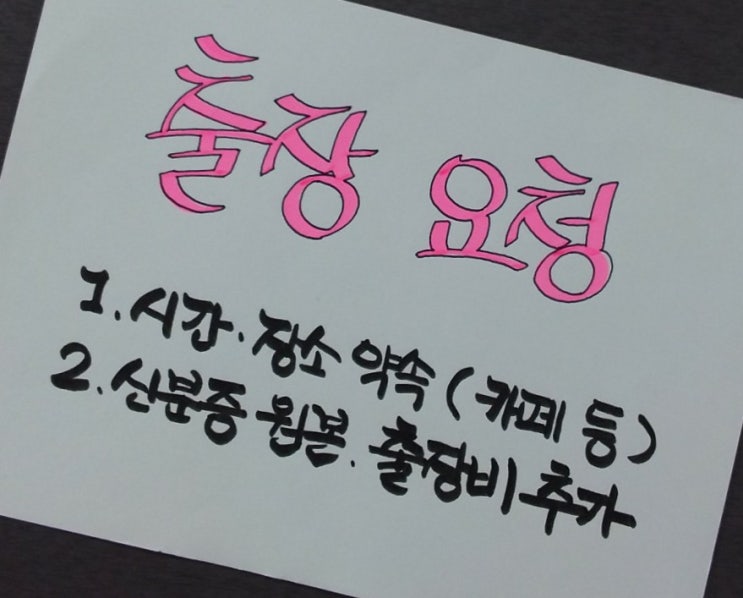 출장 요청
1. 시간·장소 약속 (카페 등)
2. 신분증 원본. 출장비 추가